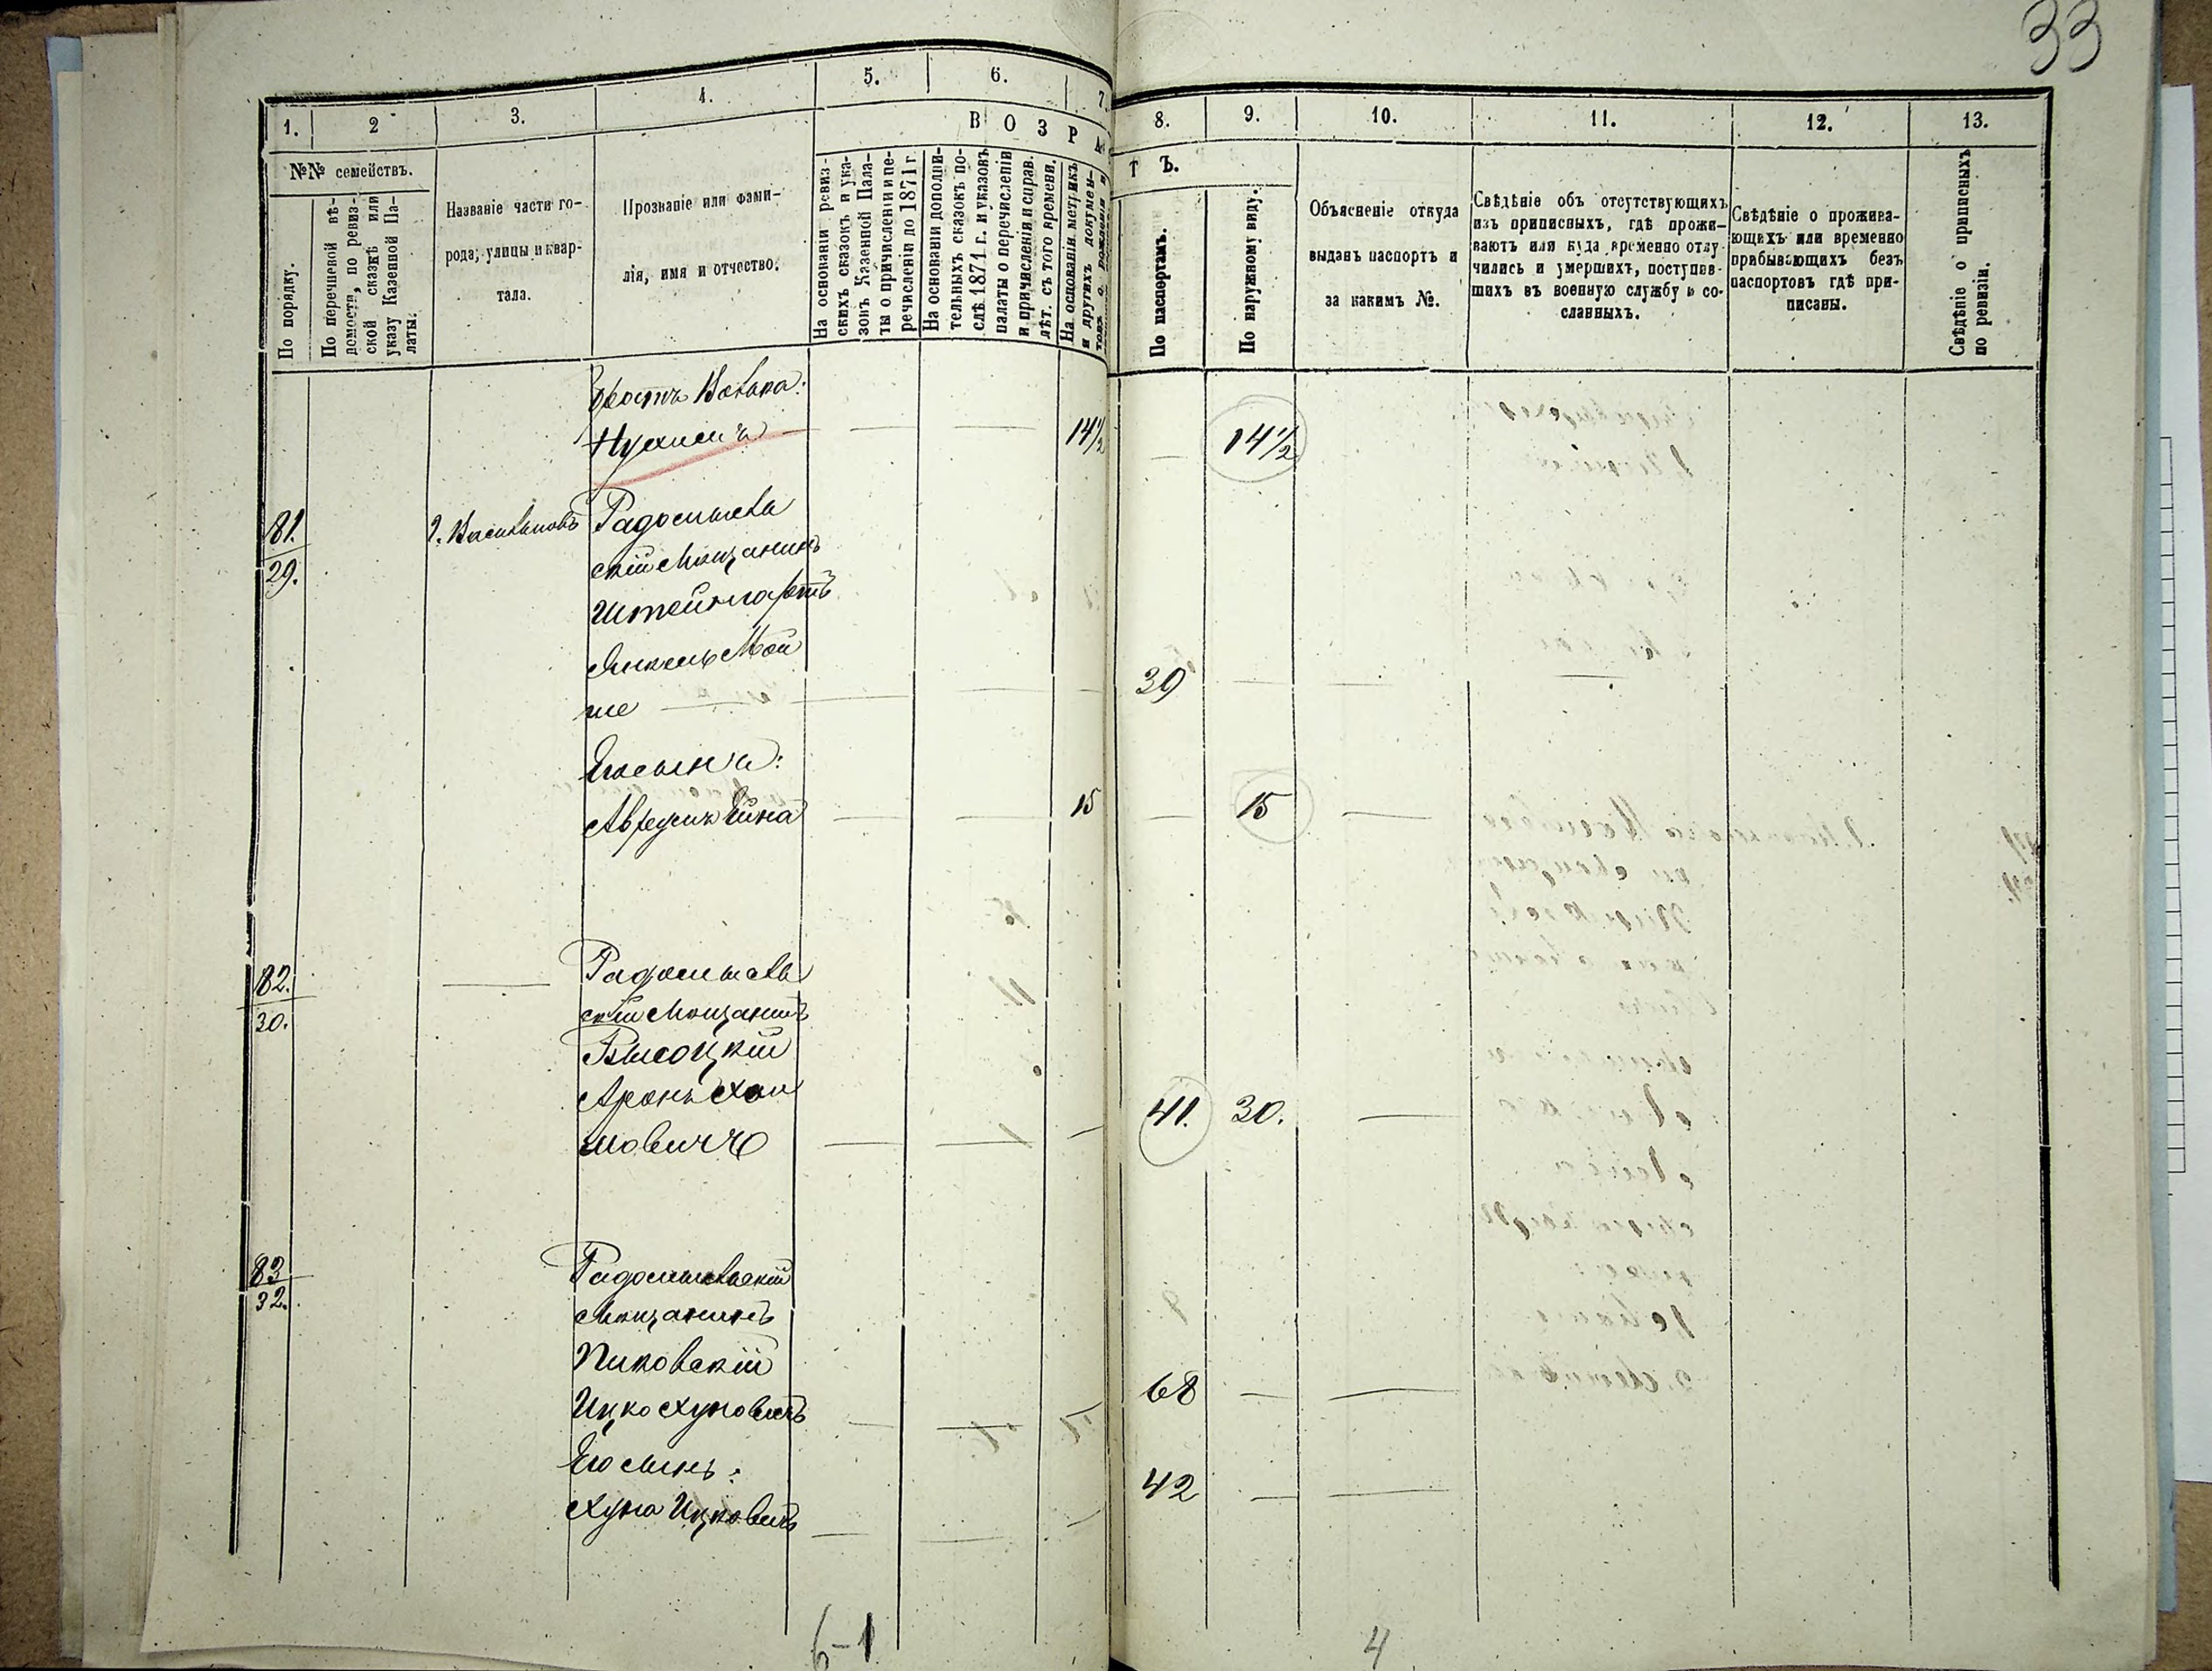 33
1.
2
3.
4.
5.
6.
7.
8.
9.
10.
11.
12.
13.
В О З Р А
Т Ъ.
№№ семействъ.
По порядку.
По перечневой вѣ-
домости, по ревиз-
ской сказкѣ или
указу Казенной Па-
латы.
Названіе части го-
рода, улицы и квар-
тала.
Прозваніе или фами-
лія, имя и отчество.
На основаніи ревиз-
скихъ сказокъ и ука-
зовъ Казенной Пала-
ты о причисленіи и пе-
речисленіи до 1871 г.
На основаніи дополни-
тельныхъ сказокъ по-
слѣ 1871 г. и указовъ
палаты о перечисленіи
и причисленіи и справ.
лѣт. съ того времени.
На основаніи метрикъ
и другихъ докумен-
товъ о рожденіи и
По паспортамъ.
По наружному виду.
Объясненіе откуда
выданъ паспортъ и
за какимъ №.
Свѣдѣніе объ отсутствующихъ
изъ приписныхъ, гдѣ прожи-
ваютъ или куда временно отлу-
чились и умершихъ, поступив-
шихъ въ военную службу и со-
сланныхъ.
Свѣдѣніе о прожива-
ющихъ или временно
прибывающихъ безъ
паспортовъ гдѣ при-
писаны.
Свѣдѣніе о приписныхъ
по ревизіи.
братъ
14½ 14½
81. Г. Васильковъ Радомысль
29. скій Мѣщанинъ
Мой
ше 39
Его сын
15 15
82. Радомысль
30. скій Мѣщанинъ
Высоцкій
Аронъ Хаи
мовичъ 41. 30.
83 Радомысльскій
32. Мѣщанинъ
Пиковскій
Ицко Хуновичъ 68
Его сынъ:
Хуна Ицковичъ 42
6-1
4